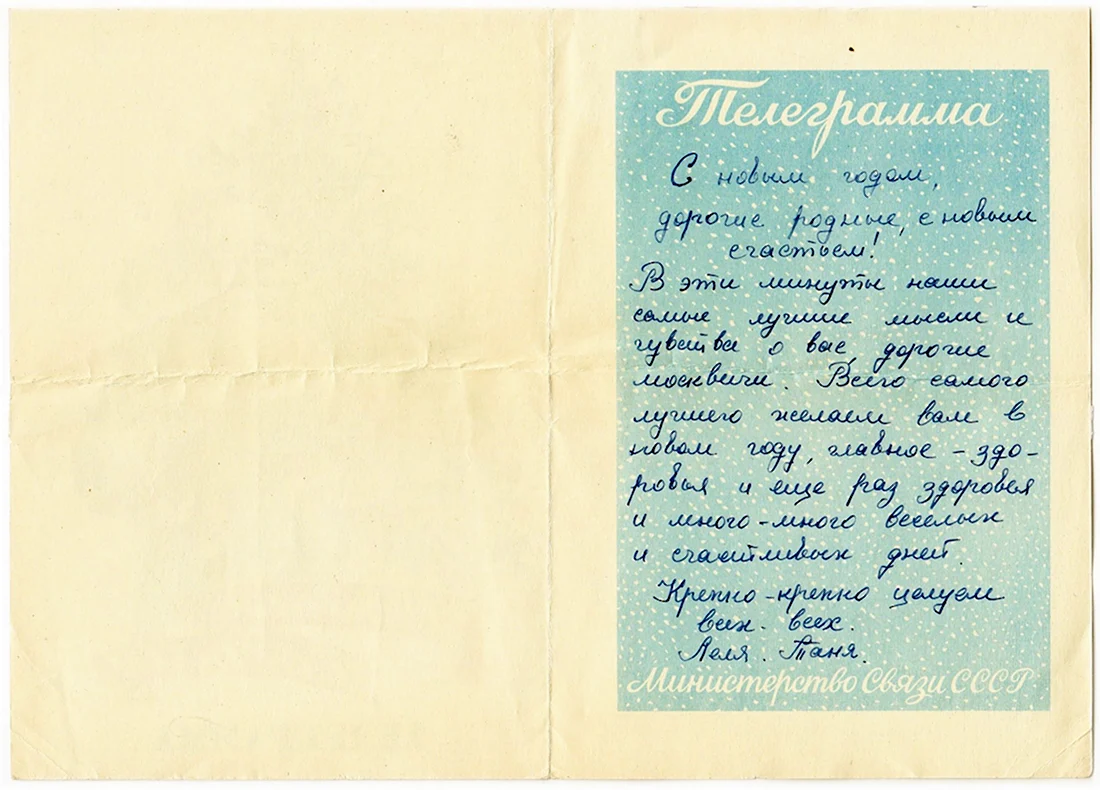 Телеграмма
С новым годом,
дорогие родные, с новым
счастьем!
В эти минуты наши
самые лучшие мысли и
чувства о вас, дорогие
москвичи. Всего самого
лучшего желаем вам в
новом году, главное - здо-
ровья и еще раз здоровья
и много-много веселых
и счастливых дней.
Крепко-крепко целуем
всех-всех.
Леля. Таня.
Министерство Связи СССР